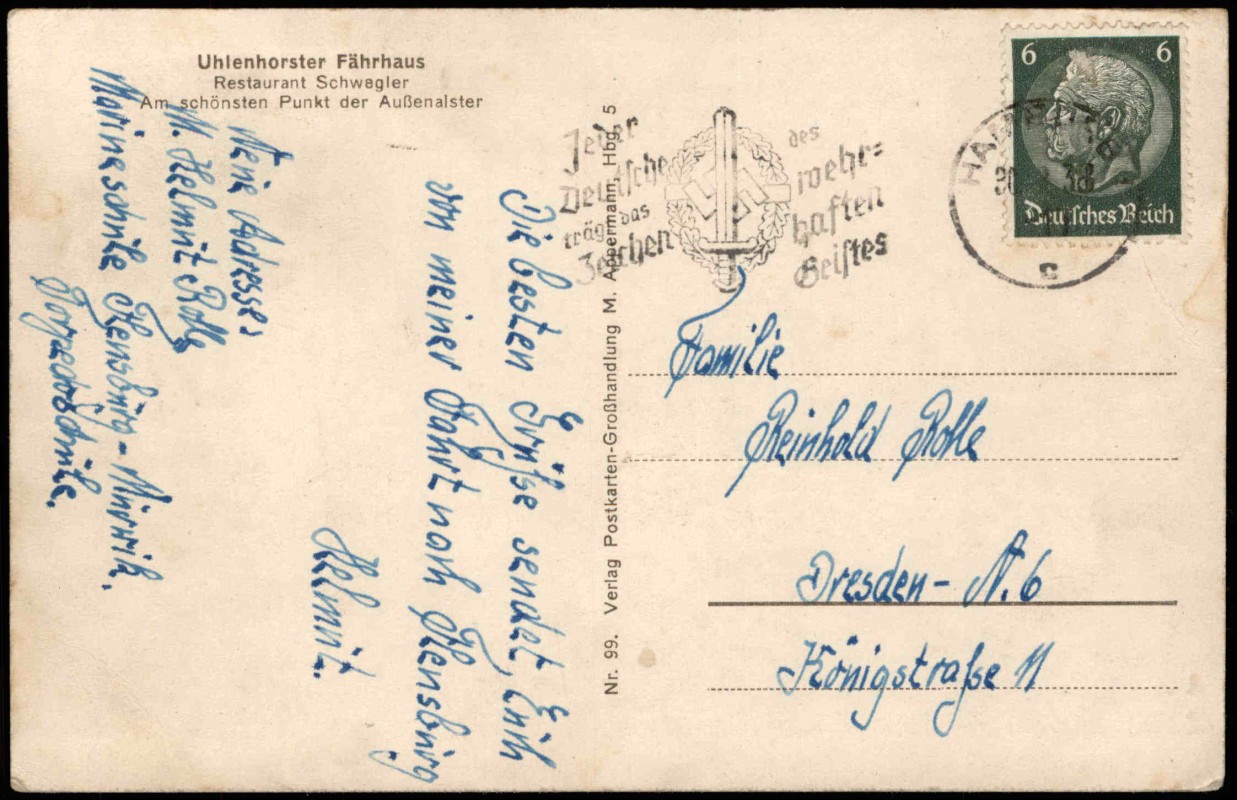 Uhlenhorster Fährhaus
Restaurant Schwegler
Am schönsten Punkt der Außenalster
Jeder
Deutsche
trägt das
Zeichen
des
wehr-
haften
Geistes
6 6
Deutsches Reich
HAMBURG
c
Die besten Grüße sendet Euch
von meiner Fahrt nach Flensburg
Helmut.
Meine Adresse:
M. Helmut Rolle
Marineschule Flensburg-Mürwik.
Torpedoschule.
Nr. 99. Verlag Postkarten-Großhandlung M. Appermann, Hbg. 5
Familie
Reinhold Rolle
Dresden-N. 6
Königstraße 11